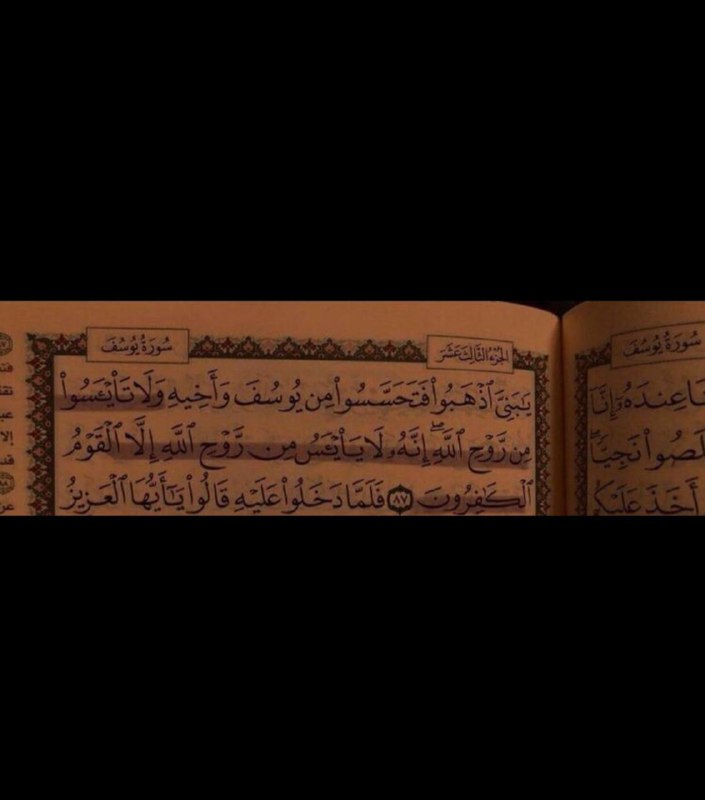 سُورَةُ يُوسُفَ
الجُزْءُ الثَّالِثَ عَشَرَ
يَٰبَنِيَّ ٱذْهَبُوا۟ فَتَحَسَّسُوا۟ مِن يُوسُفَ وَأَخِيهِ وَلَا تَا۟يْـَٔسُوا۟
مِن رَّوْحِ ٱللَّهِ ۖ إِنَّهُۥ لَا يَا۟يْـَٔسُ مِن رَّوْحِ ٱللَّهِ إِلَّا ٱلْقَوْمُ
ٱلْكَٰفِرُونَ ٨٧ فَلَمَّا دَخَلُوا۟ عَلَيْهِ قَالُوا۟ يَٰٓأَيُّهَا ٱلْعَزِيزُ
سُورَةُ يُوسُفَ
عِندَهُۥٓ إِنَّآ
نَجِيًّا ۖ
أَخَذَ